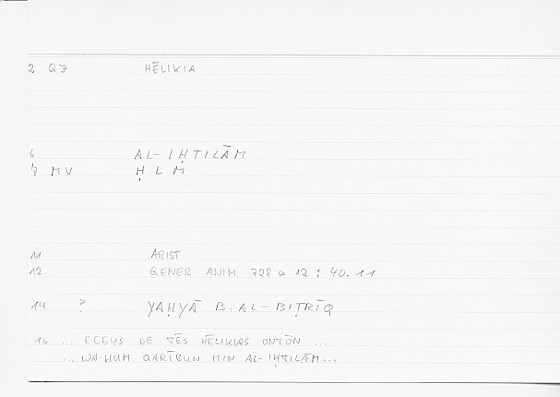 2 QJ HĒLIKIA
6 AL-IḤTILĀM
7 MV ḤLM
11 ARIST
12 GENER ANIM 728 a 12 : 40.11
14 ? YAḤYĀ B. AL-BIṬRĪQ
16 ... EGGYS DE TĒS HĒLIKIAS ONTŌN ...
... WA-HUM QARĪBUN MIN AL-IḤTILĀM ...